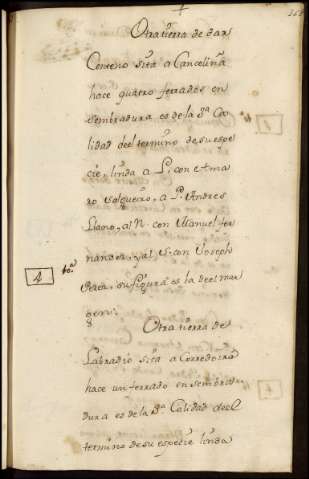 Otra tierra de dar
Centeno sita a Cancelina
hace quatro ferrados en
sembradura es de la 3ª Ca
lidad del termino de su espe
cie, linda a L. con Ama
ro Salgueiro, a P. Andres
Llano, al N. con Manuel fer
nandez, y al S. con Joseph
su figura es la del mar
gen:
4
Otra tierra de
Labradio sita a Corredoira
hace un ferrado en sembra
dura es de la 3ª Calidad del
termino de su espezie linda